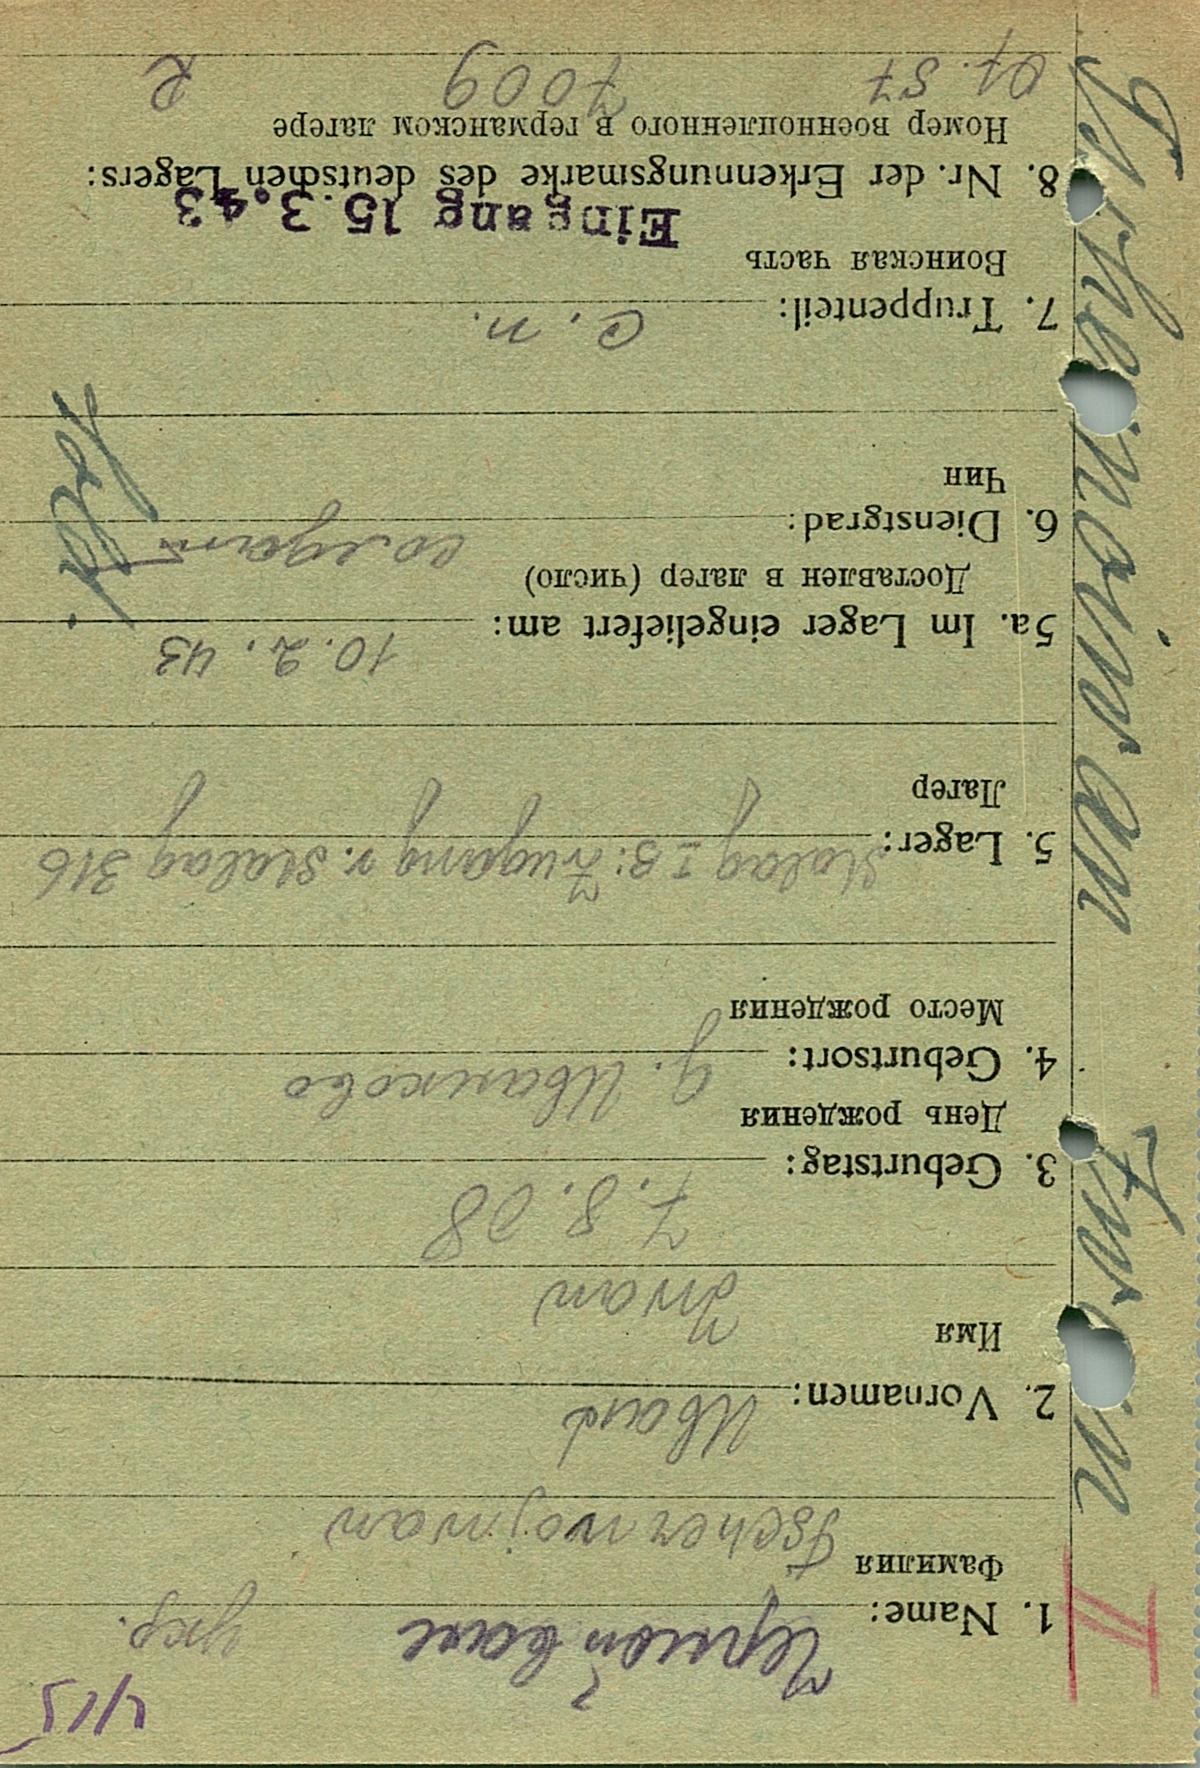 4/15
Чернойван укр.
1. Name:
Фамилия
Tschernojwan
2. Vornamen: Иван
Имя
Iwan
3. Geburtstag: 7. 8. 08
День рождения
4. Geburtsort: д. Иванково
Место рождения
5. Lager: Stalag I B: Zugang v. Stalag 316
Лагер
5a. Im Lager eingeliefert am: 10. 2. 43
Доставлен в лагер (число)
6. Dienstgrad: солдат
Чин
Sold.
7. Truppenteil: с. п.
Воинская часть
Eingang 15.3.43
8. Nr. der Erkennungsmarke des deutschen Lagers:
Номер военнопленного в германском лагере
7009
II Iwan